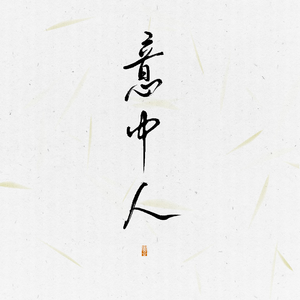 意中人